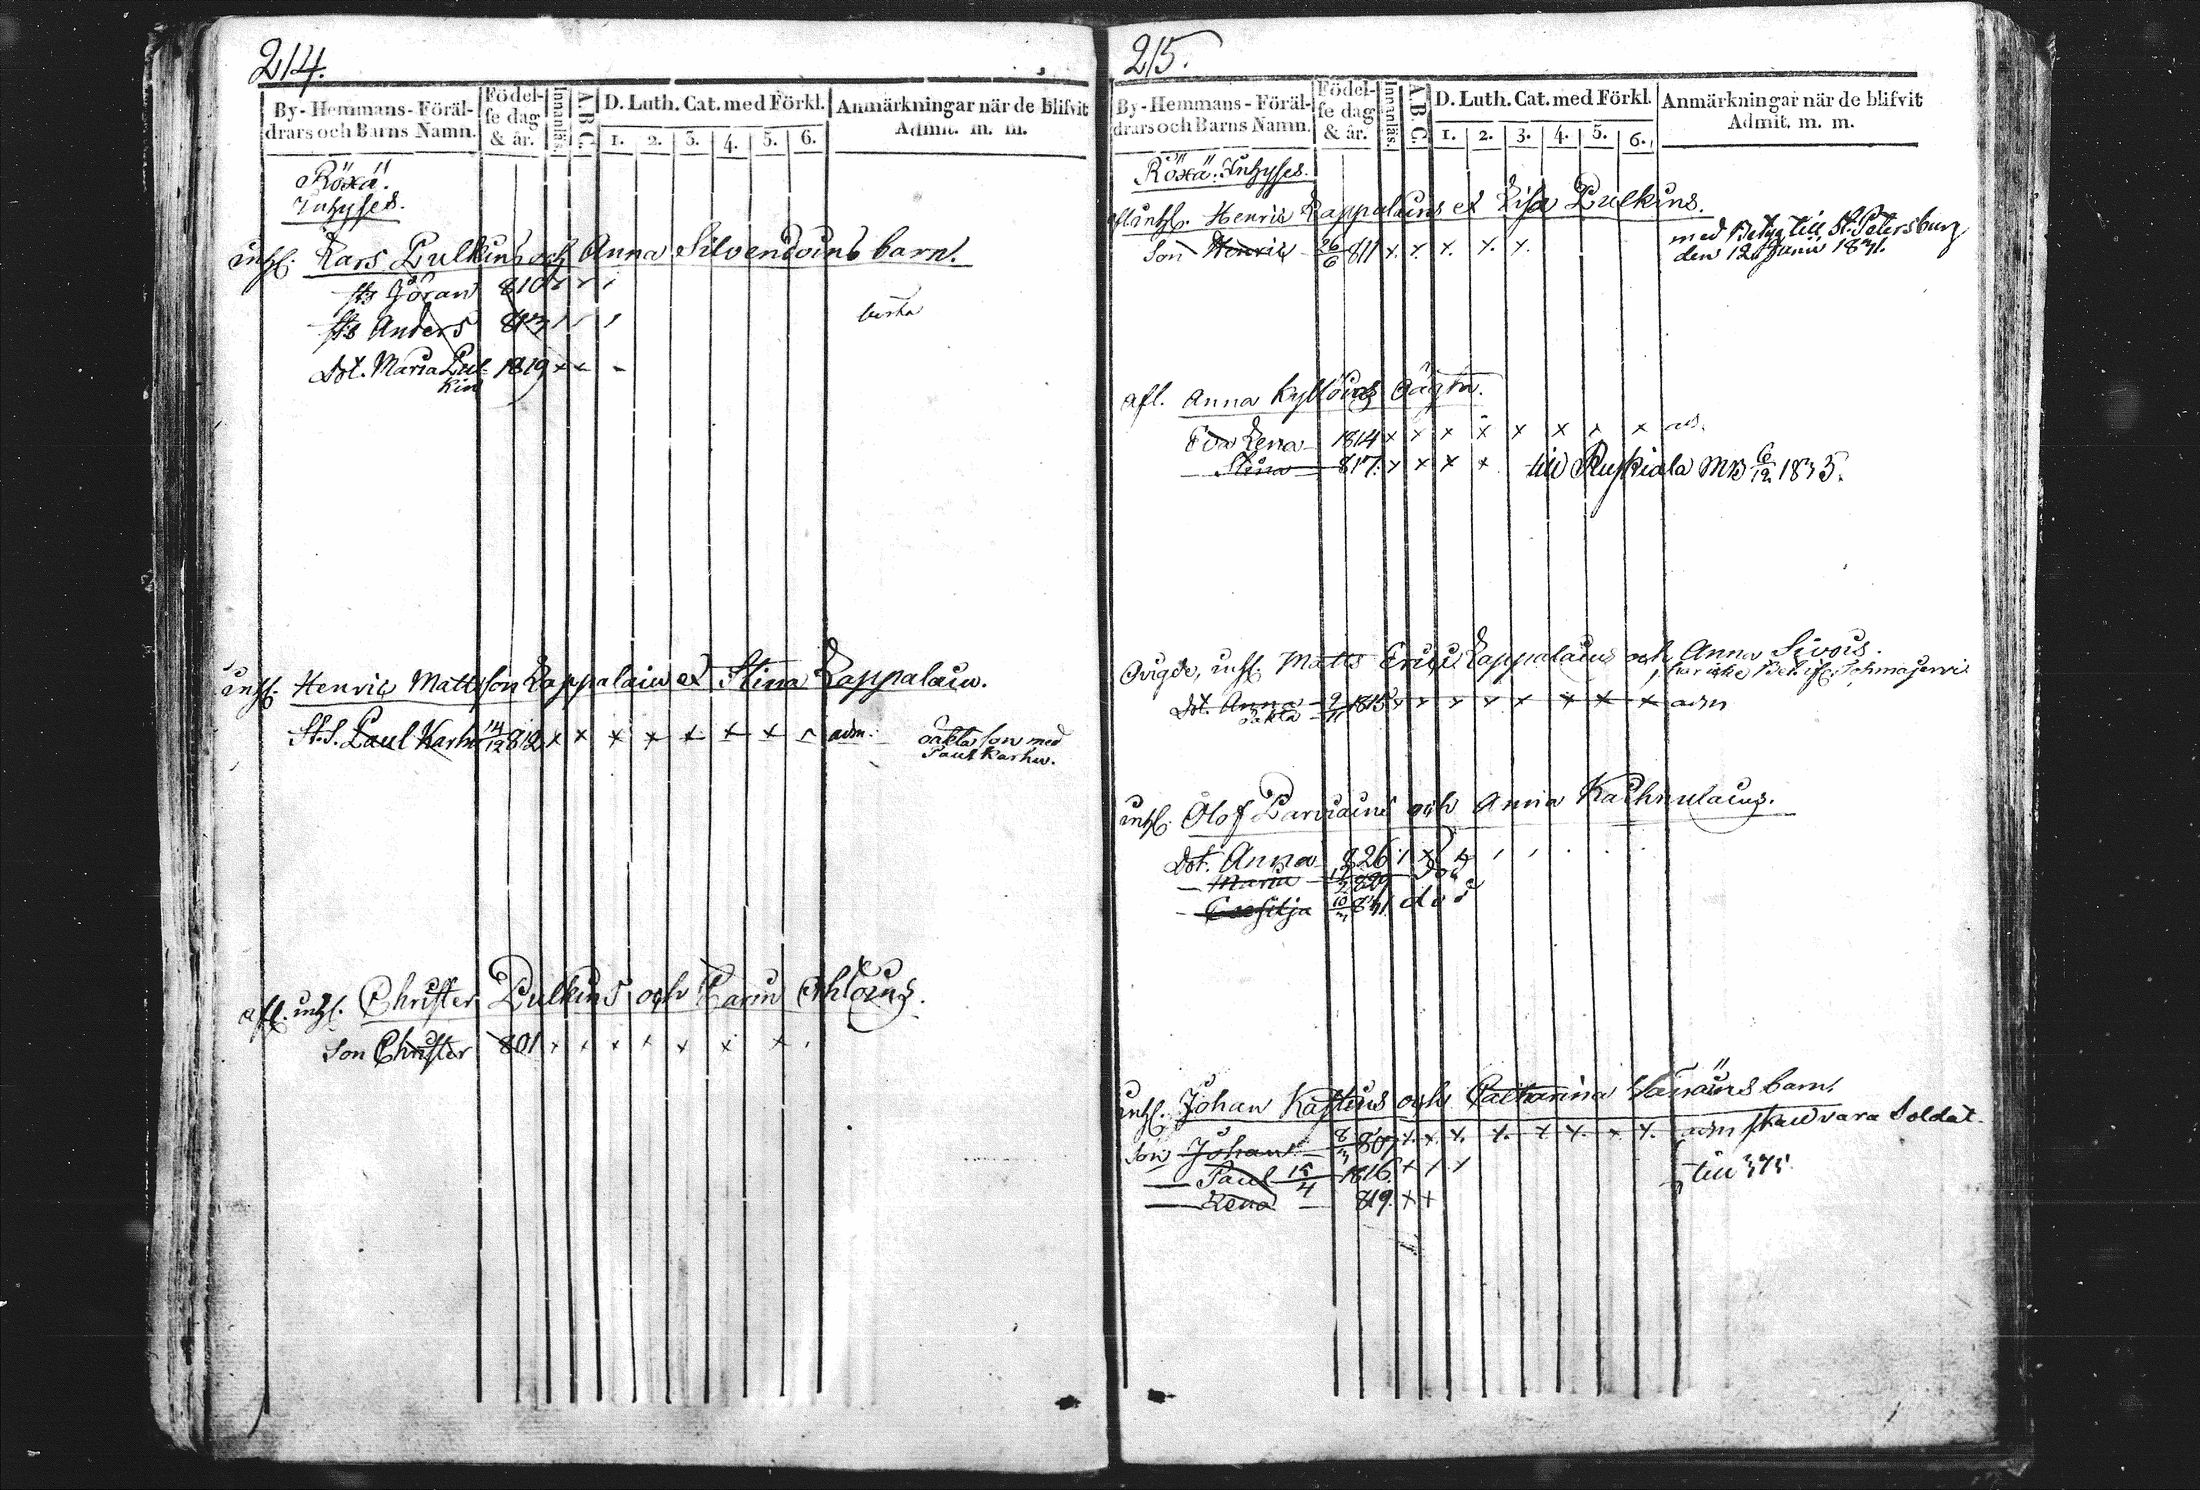 214.
By-Hemmans-Föräl-
drars och Barns Namn.
Födel-
se dag
& år.
Innanläs.
A B C.
D. Luth. Cat. med Förkl.
1. 2. 3. 4. 5. 6.
Anmärkningar när de blifvit
Admit. m. m.
Röxä.
Inhyses.
inhs. Lars Pulkins och Anna Silvendoins barn.
Jöran 810
Anders 813
Dot. Maria Pul- 1819 x x -
kin
inhs. Henric Mattsson Lappalain et Stina Lappalain.
St. S. Paul Karhu 14/12 812 x x x x x x x adm: oäkta son med
Paul Karhu.
afl. inhs. Christer Pulkins och Carin
son Christer 801 x x x x x x x
215.
By-Hemmans-Föräl-
drars och Barns Namn.
Födel-
se dag
& år.
Innanläs.
A B C.
D. Luth. Cat. med Förkl.
1. 2. 3. 4. 5. 6.
Anmärkningar när de blifvit
Admit. m. m.
Röxä. Inhyses.
afl. inhs. Henric Lappalains et Lisa Pulkins.
son Henric 26/6 811 x. x. x. x. x. med Betyg till St. Petersburg
den 12 Junii 1831.
afl. Anna Kyllöins oägta.
Eva Lena 1814 x x x x x x x x ad.
Stina 817. x x x x till Ruskiala MB 6/12 1835.
inhs. Matts Erics. Lappalains och Anna Sivois.
har icke Bet. if. Tohmajervi
Dot. Anna 9/11 1815 x x x x x x x x adm
oäkta
inhs. Olof Parviains och Anna Kachnulains.
Dot. Anna 826
— Maria 829 död
— 10 831. död
inhs. Johan Kastins och Catharina Väisäins barn.
son Johan 8 807 x. x. x. x. x x. x x. adm skall vara Soldat.
— Paul 15/4 1816. x x x till 375.
— Lena — 819. x x